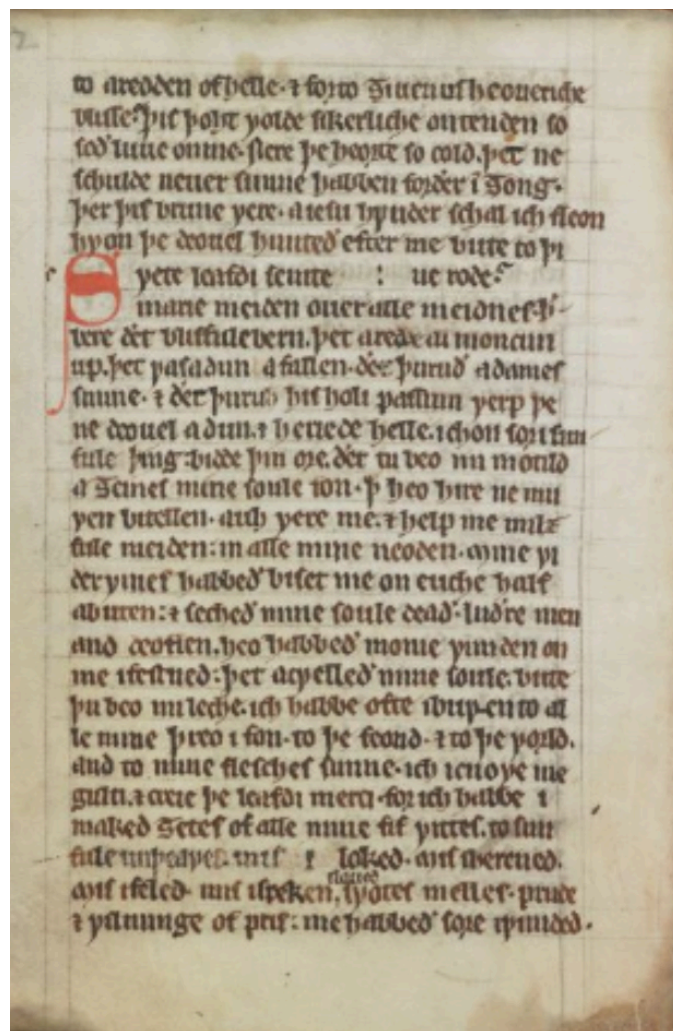 to aredden of helle· ⁊ forto ȝiuen us heoueriche
blisse· þis þoht ƿolde sikerliche ontenden so
soð luue on mi·stere þe heorte so cold. þet ne
schulde neuer sunne habben forðer ī ȝong·
þer þis brune ƿere· a iesu hƿider schal ich fleon
hƿon þe deouel hunteð efter me bute to þi
Sƿete leafdi seinte : ue rode·
marie meiden ouer alle meidnes· þ
bere ðet blisfule bern. þet arerde al moncun
up. þet ƿas adun afallen· ðer þuruð adames
sunne· ⁊ ðet þuruh his holi passiun ƿerp þe
ne deouel adun. ⁊ heriede helle. ich on sori sun
fule þing· bidde þin ore. ðet tu beo mi motild
aȝeines mine soule fon· þ heo hire ne mu
ƿen bitellen. auh ƿere me. ⁊ help me milz
fule meiden: in alle mine neoden· mine ƿi
derƿines habbeð biset me on euche half
abuten: ⁊ secheð mine soule deað· luðre men
and deoflen. heo habbeð monie ƿunden on
me ifestned: þet acƿelleð mine soule. bute
þu beo mi leche. ich habbe ofte ibuƿen to al
le mine þreo i fon· to þe feond· ⁊ to þe ƿorld.
and to mine flesches sunne· ich icnoƿe me
gulti. ⁊ crie þe leafdi merci· for ich habbe i
maked ȝetes of alle mine fif ƿittes. to sun
fule unþeaƿes. mis i loked· mis iherened.
mis ifeled· mis ispeken, iluued sƿotes melles· prude
⁊ ƿilnunge of pris: me habbeð sore iƿunded.